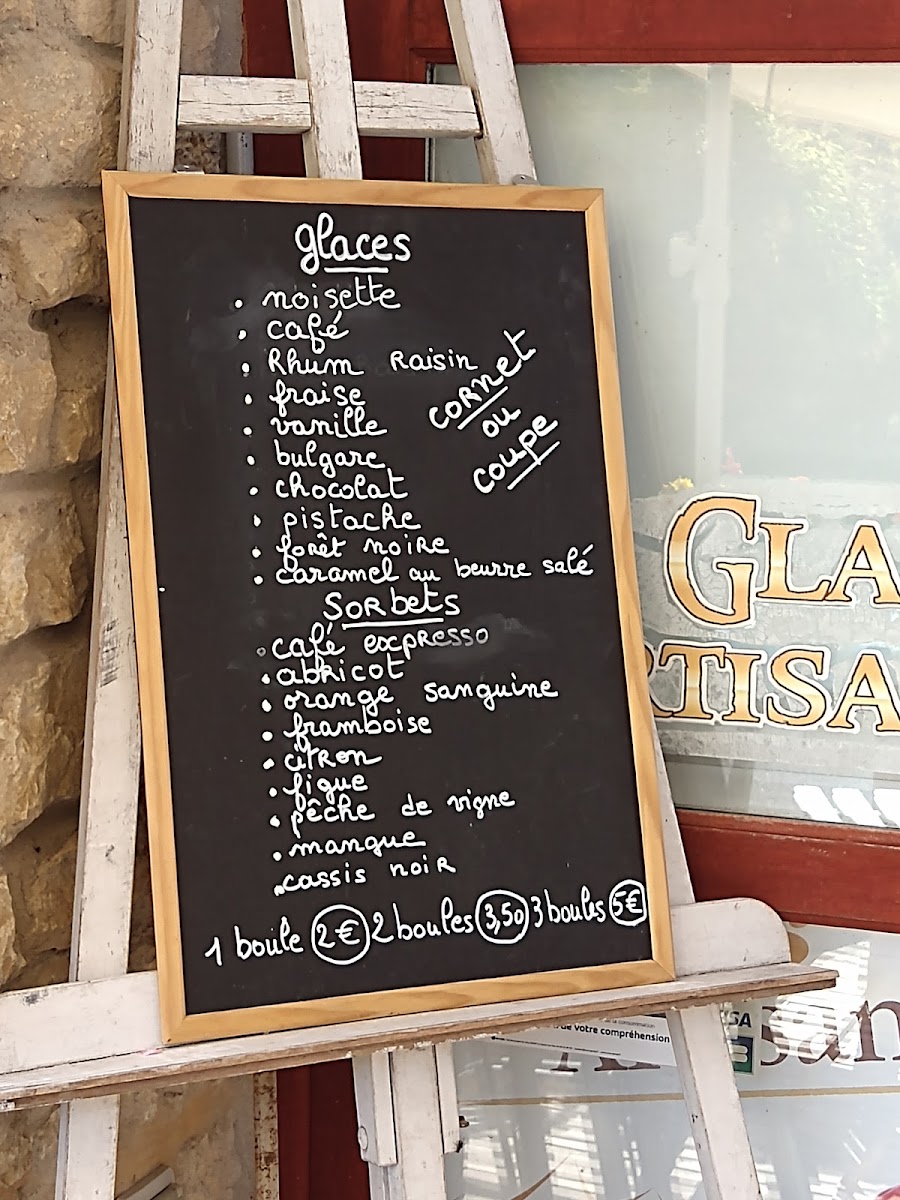 glaces
• noisette
• café
• Rhum Raisin
• fraise
• vanille
• bulgare
• chocolat
• pistache
• forêt noire
• caramel au beurre salé
cornet
ou
coupe
Sorbets
• café expresso
• abricot
• orange sanguine
• framboise
• citron
• figue
• pêche de vigne
• mangue
• cassis noir
1 boule 2€ 2 boules 3,50 3 boules 5€
GLA
RTISA
de votre compréhension
SA